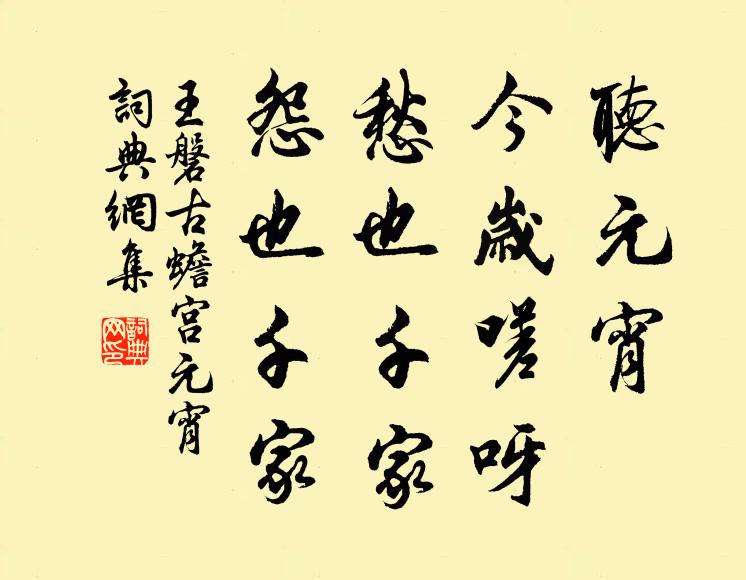 聽元宵
今歲嗟呀
愁也千家
怨也千家
王磐古蟾宮元宵
詞典網集
詞典網印